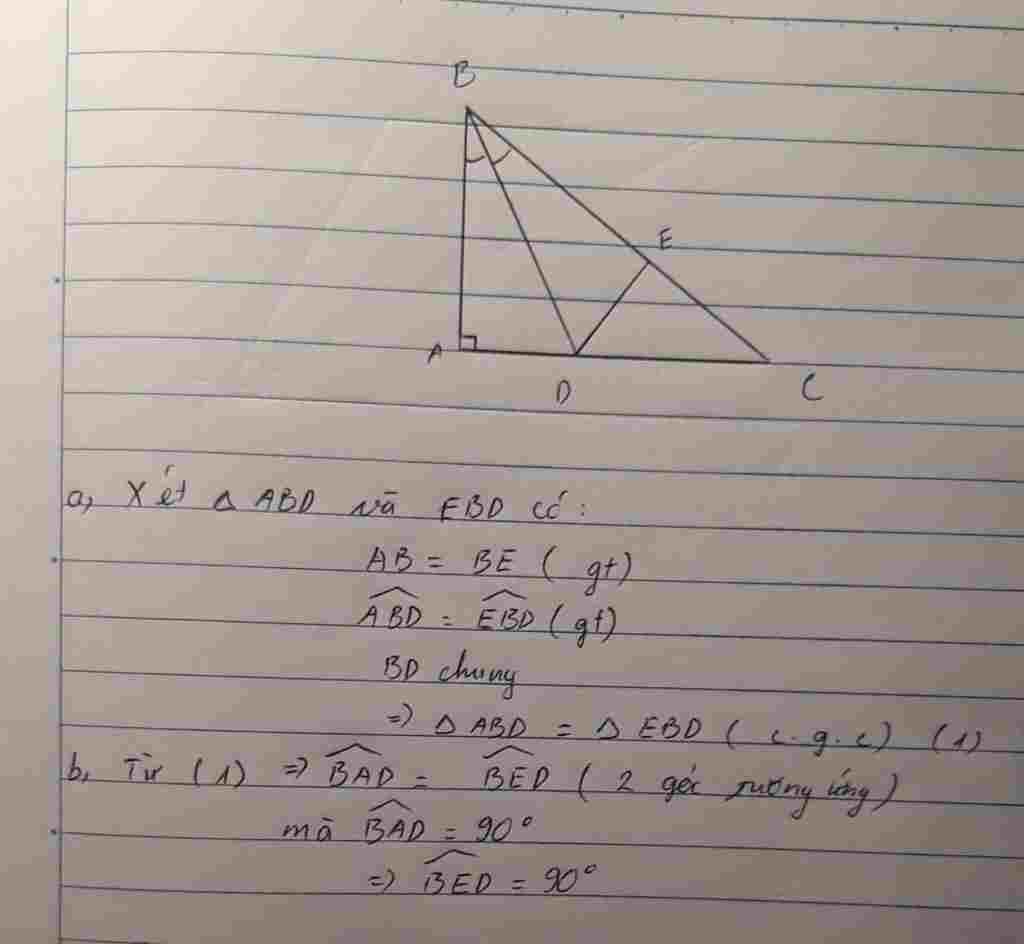 B
E
A
D
C
a, Xét Δ ABD và EBD có:
AB = BE ( gt)
\widehat{ABD} = \widehat{EBD} ( gt)
BD chung
=> Δ ABD = Δ EBD ( c.g.c) (1)
b, Từ (1) => \widehat{BAD} = \widehat{BED} ( 2 góc tương ứng)
mà \widehat{BAD} = 90°
=> \widehat{BED} = 90°